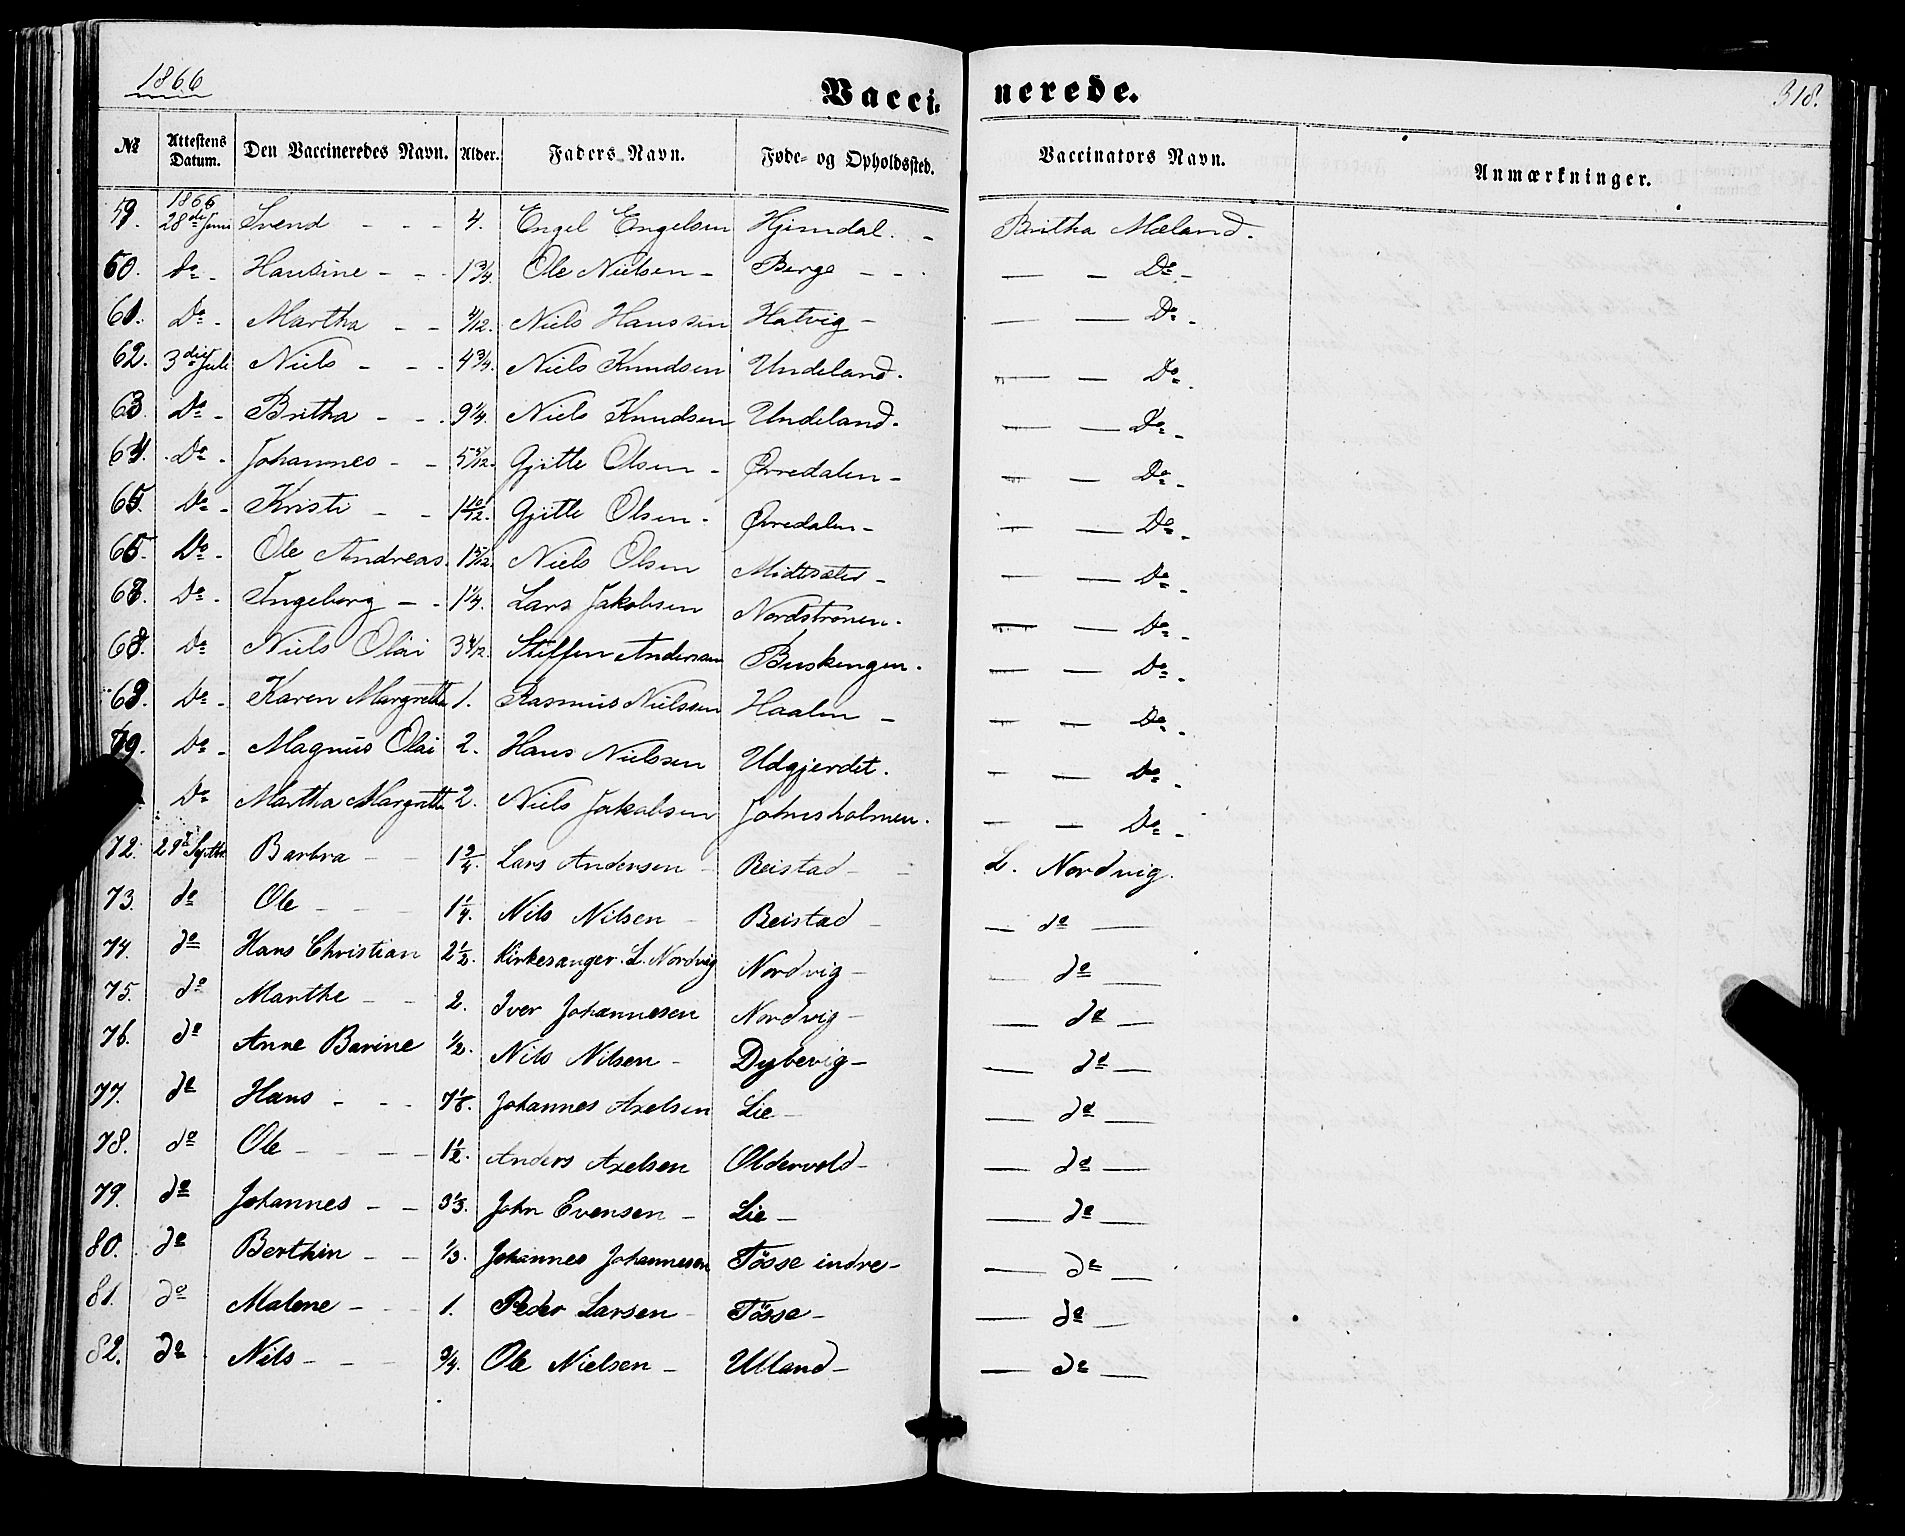 1866
Vacci-nerede.
318.
№ Attestens Datum. Den Vaccineredes Navn. Alder. Faders Navn. Føde- og Opholdssted. Vaccinators Navn. Anmærkninger.
59. 1866 28de Juni Svend - - - 4. Engel Engelsen Hjimdal. - Britha Mæland.
60. do - Hansine - - - 1 3/4. Ole Nielsen - Berge - - - — — Do -
61. Do - Martha - - 4/12. Niels Hanssen Hatvig - — — Do -
62. 3die Juli Niels - - - 4 3/4. Niels Knudsen Undeland. — — Do -
63. Do - Britha - - - 9 1/4. Niels Knudsen Undeland. — — Do -
64. Do - Johannes - - 5 5/12. Gjitle Olsen - Øvredalen - — — Do -
65. Do - Kristi - - 1 10/12. Gjitle Olsen - Øvredalen - — — Do -
Do - Ole Andreas. 1 5/12. Niels Olsen Midtsæter - — — Do -
Do - Ingeborg - - 1 1/4. Lars Jakobsen Nordstrønen. — — Do -
68. Do Niels Olai 3 4/12. Steffen Andersen Buskengen. — — Do -
Do - Karen Margrethe 1. Rasmus Nielssen Haalen - — — Do -
Do - Magnus Olai 2. Hans Nielssen Udgjerdet. — — Do -
Do Martha Margrethe 2. Niels Jakobsen Johnsholmen. — — Do -
72. 29de Septbr Barbra - - 1 3/4. Lars Andersen - Beistad - - L. Nordvig.
73. do Ole - - - 1 1/4. Nils Nilsen - Beistad - — do —
74. do Hans Christian 2 1/2. Kirkesanger L. Nordvig Nordvig - — do —
75. do Marthe - - 2. Iver Johannesen Nordvig - — do —
76. do Anne Barine 1/2. Nils Nilsen - Dybevig - — do —
77. do Hans - - - 7 1/6. Johannes Axelsen Lie - — do —
78. do Ole - - - - 1 1/2. Anders Axelsen Oldervold - — do —
79. do Johannes - - 3 1/3. John Evensen - Lie - — do —
80. do Berthin - - 1/3. Johannes Johannesen Tösse indre - — do —
81. do Malene - - 1. Peder Larsen - Tösse - — do —
82. do Nils - - - 3/4. Ole Nielsen - Ulland - — do —